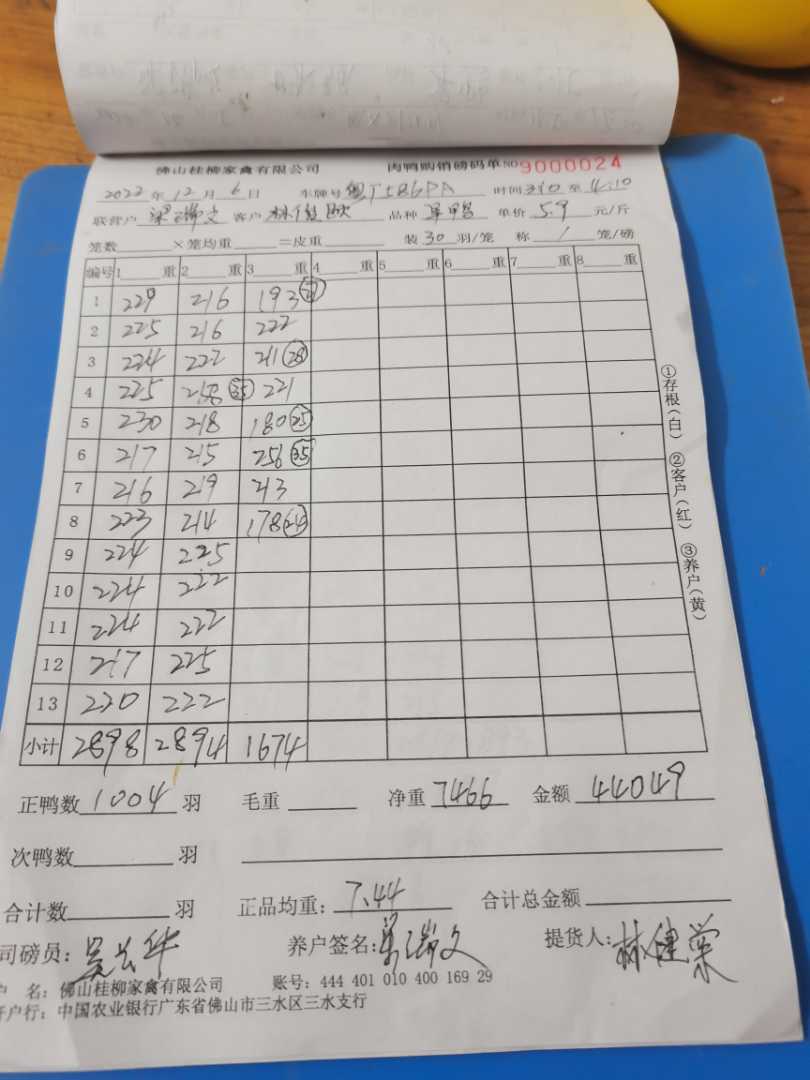 佛山桂柳家禽有限公司 肉鸭购销磅码单 NO 9000024
2022年12月6日 车牌号 粤 时间 至 4:10
联营户 梁瑞文 客户 林 品种 单价 5.9 元/斤
笼数 ×笼均重 =皮重 装 30 羽/笼 称 1 笼/磅
编号 1 重 2 重 3 重 4 重 5 重 6 重 7 重 8 重
1 229 216 193
2 225 216 222
3 224 222 211 (28)
4 225 258 (35) 221
5 230 218 180 (25)
6 217 215 256 (35)
7 216 219 213
8 223 214 178 (24)
9 224 225
10 224 222
11 224 222
12 217 225
13 220 222
小计 2898 2894 1674
正鸭数 1004 羽 毛重 净重 7466 金额 44049
次鸭数 羽
合计数 羽 正品均重: 7.44 合计总金额
司磅员: 养户签名: 梁瑞文 提货人: 林健荣
户 名: 佛山桂柳家禽有限公司 账号: 444 401 010 400 169 29
开户行: 中国农业银行广东省佛山市三水区三水支行
①存根(白) ②客户(红) ③养户(黄)